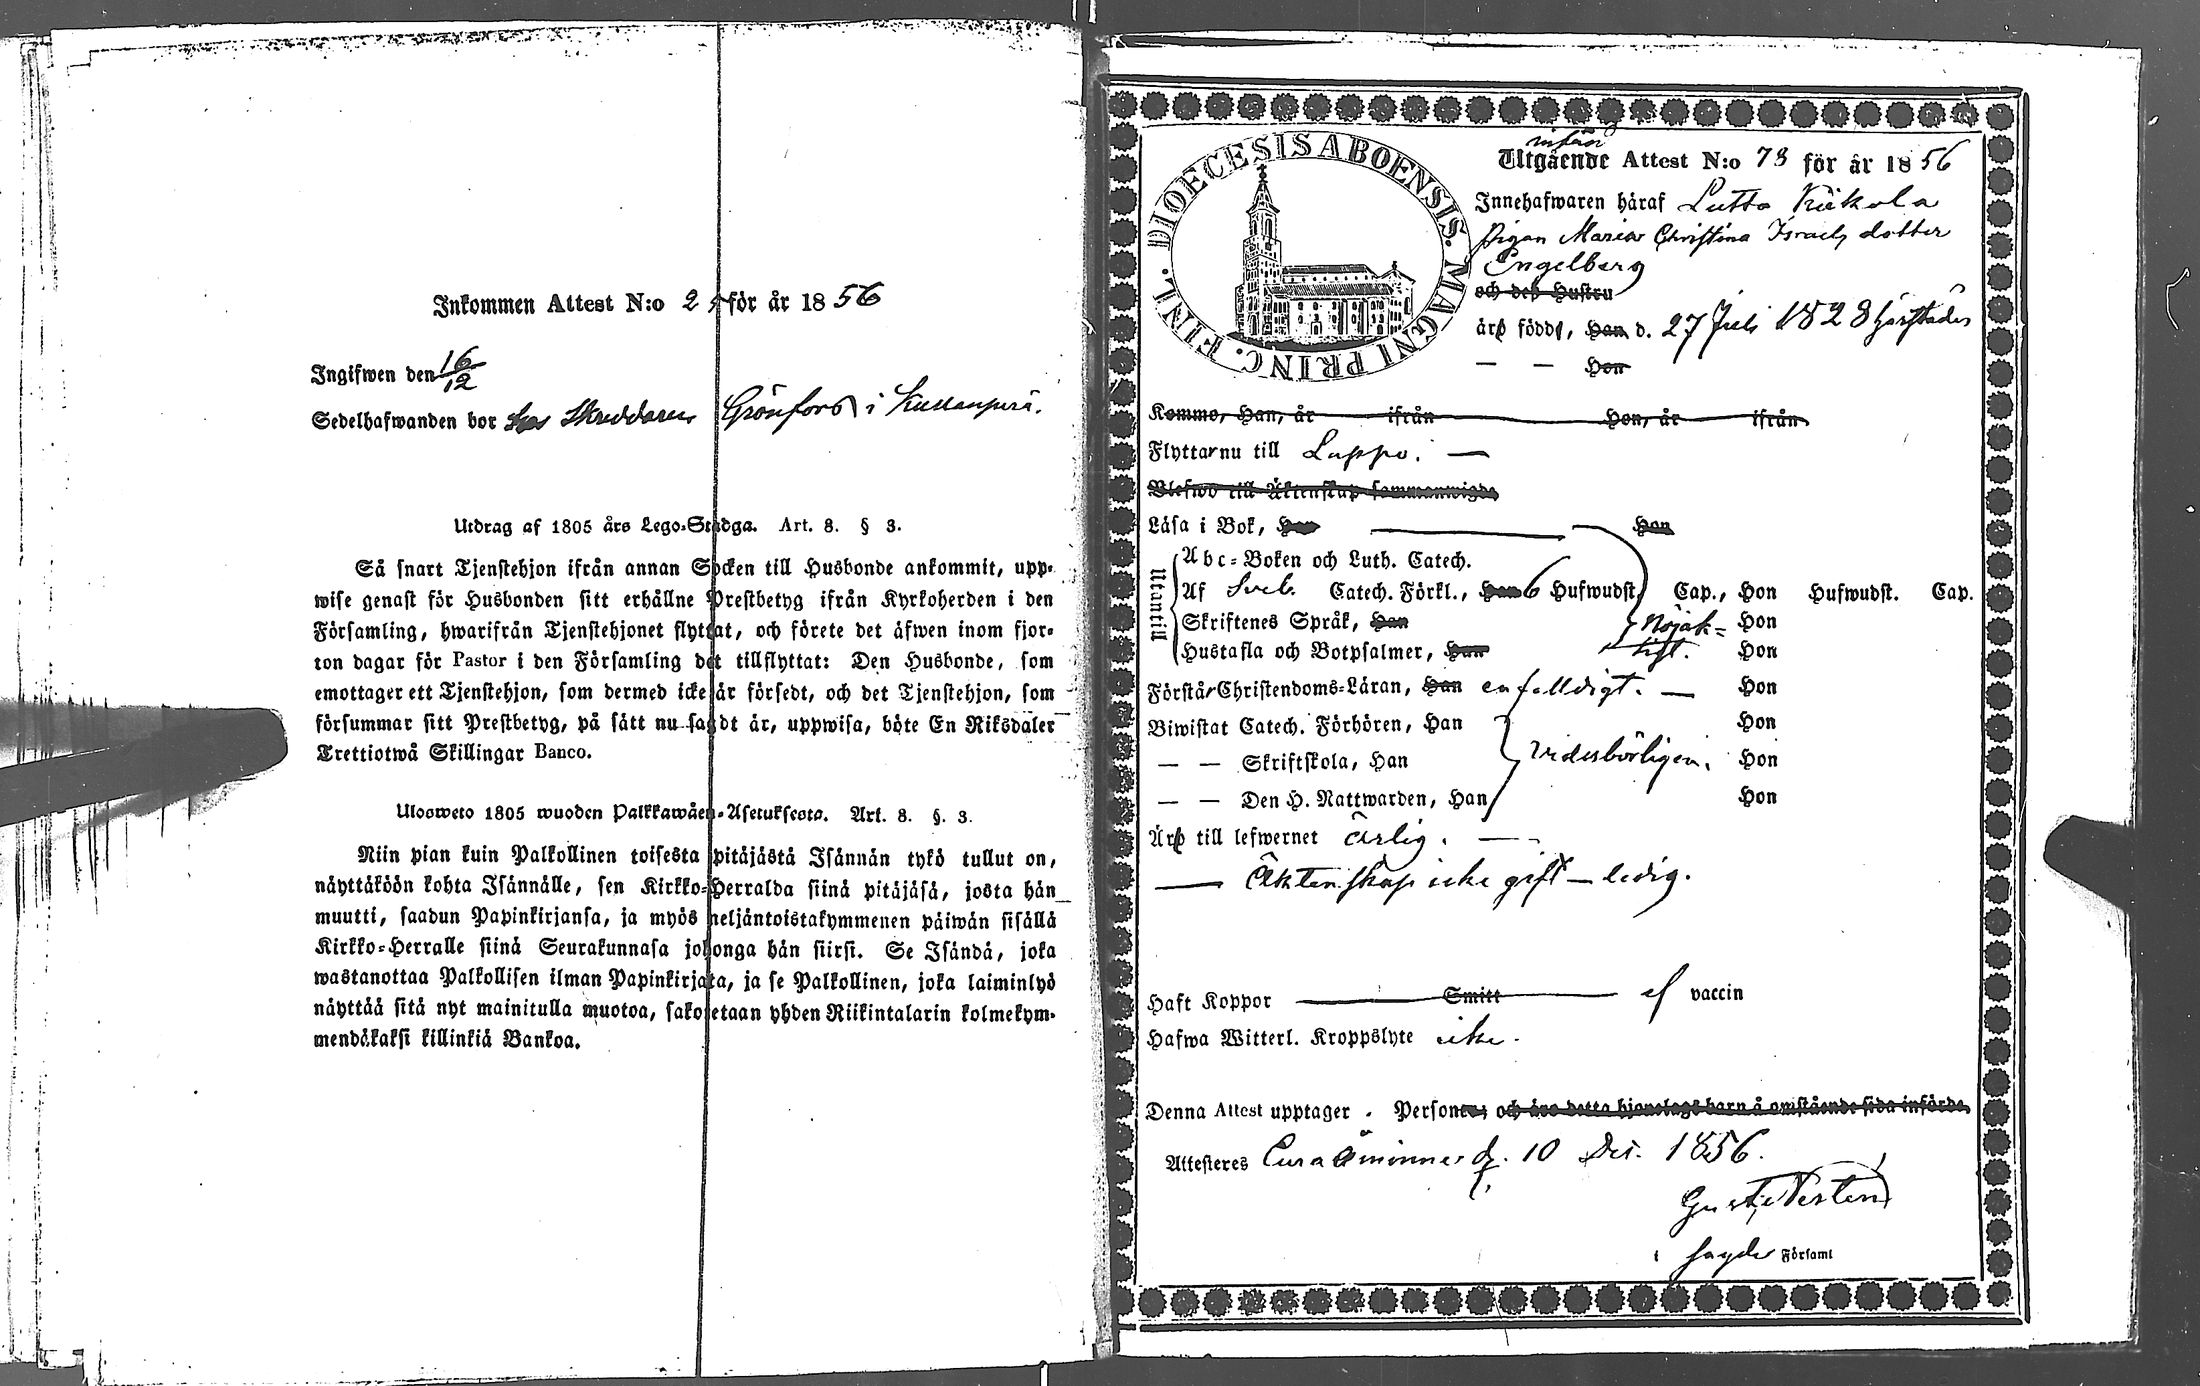 Inkommen Attest N:o 25 för år 1856
Ingifwen den 16/12
Sedelhafwanden bor hos Skräddaren Grönfors i
Utdrag af 1805 års Lego-Stadga. Art. 8. § 3.
Så snart Tjenstehjon ifrån annan Socken till Husbonde ankommit, upp-
wise genast för Husbonden sitt erhållne Prestbetyg ifrån Kyrkoherden i den
Församling, hwarifrån Tjenstehjonet flyttat, och förete det äfwen inom fjor-
ton dagar för Pastor i den Församling det tillflyttat: Den Husbonde, som
emottager ett Tjenstehjon, som dermed icke är försedt, och det Tjenstehjon, som
försummar sitt Prestbetyg, på sätt nu sagdt är, uppwisa, böte En Riksdaler
Trettiotwå Skillingar Banco.
Ulosweto 1805 wuoden Palkkawäen-Asetuksesta. Art. 8. §. 3.
Niin pian kuin Palkollinen toisesta pitäjästä Isännän tykö tullut on,
näyttäköön kohta Isännälle, sen Kirkko-Herralda siinä pitäjäsä, josta hän
muutti, saadun Papinkirjansa, ja myös neljäntoistakymmenen päiwän sisällä
Kirkko-Herralle siinä Seurakunnasa johonga hän siirsi. Se Isändä, joka
wastanottaa Palkollisen ilman Papinkirjata, ja se Palkollinen, joka laiminlyö
näyttää sitä nyt mainitulla muotoa, sakotetaan yhden Riikintalarin kolmekym-
mendäkaksi killinkiä Bankoa.
DIOECESIS ABOENSIS. MAGNI PRINC. FINL.
Utgående Attest N:o 73 för år 1856
Innehafwaren häraf Lutta Kickola
Pigan Maria Christina Israels dotter
Engelberg
och des Hustru
äro född, Han d. 27 Juli 1828 härstädes
— — Hon
Kommo, Han, år ifrån Hon, år ifrån
Flyttar nu till Lappo. —
Blefwo till Äktenskap sammanwigde
Läsa i Bok, Han — Hon
Utantill
Abc-Boken och Luth. Catech.
Af Sveb. Catech. Förkl., Han 6 Hufwudst. Cap., Hon Hufwudst. Cap.
Skriftenes Språk, Han Nöjak= Hon
Hustafla och Botpsalmer, Han tigt. Hon
Förstår Christendoms-Läran, Han enfalldigt. — Hon
Biwistat Catech. Förhören, Han Hon
— — Skriftskola, Han vederbörligen. Hon
— — Den H. Nattwarden, Han Hon
Äro till lefwernet ärlig. —
— Äktenskap icke gift — ledig.
Haft Koppor — Smitt — af vaccin
Hafwa Witterl. Kroppslyte icke.
Denna Attest upptager . Personer; och äro detta hjonelags barn å omstående sida införde.
Attesteres Euraåminne d. 10 Dec. 1856.
i sagde Församl